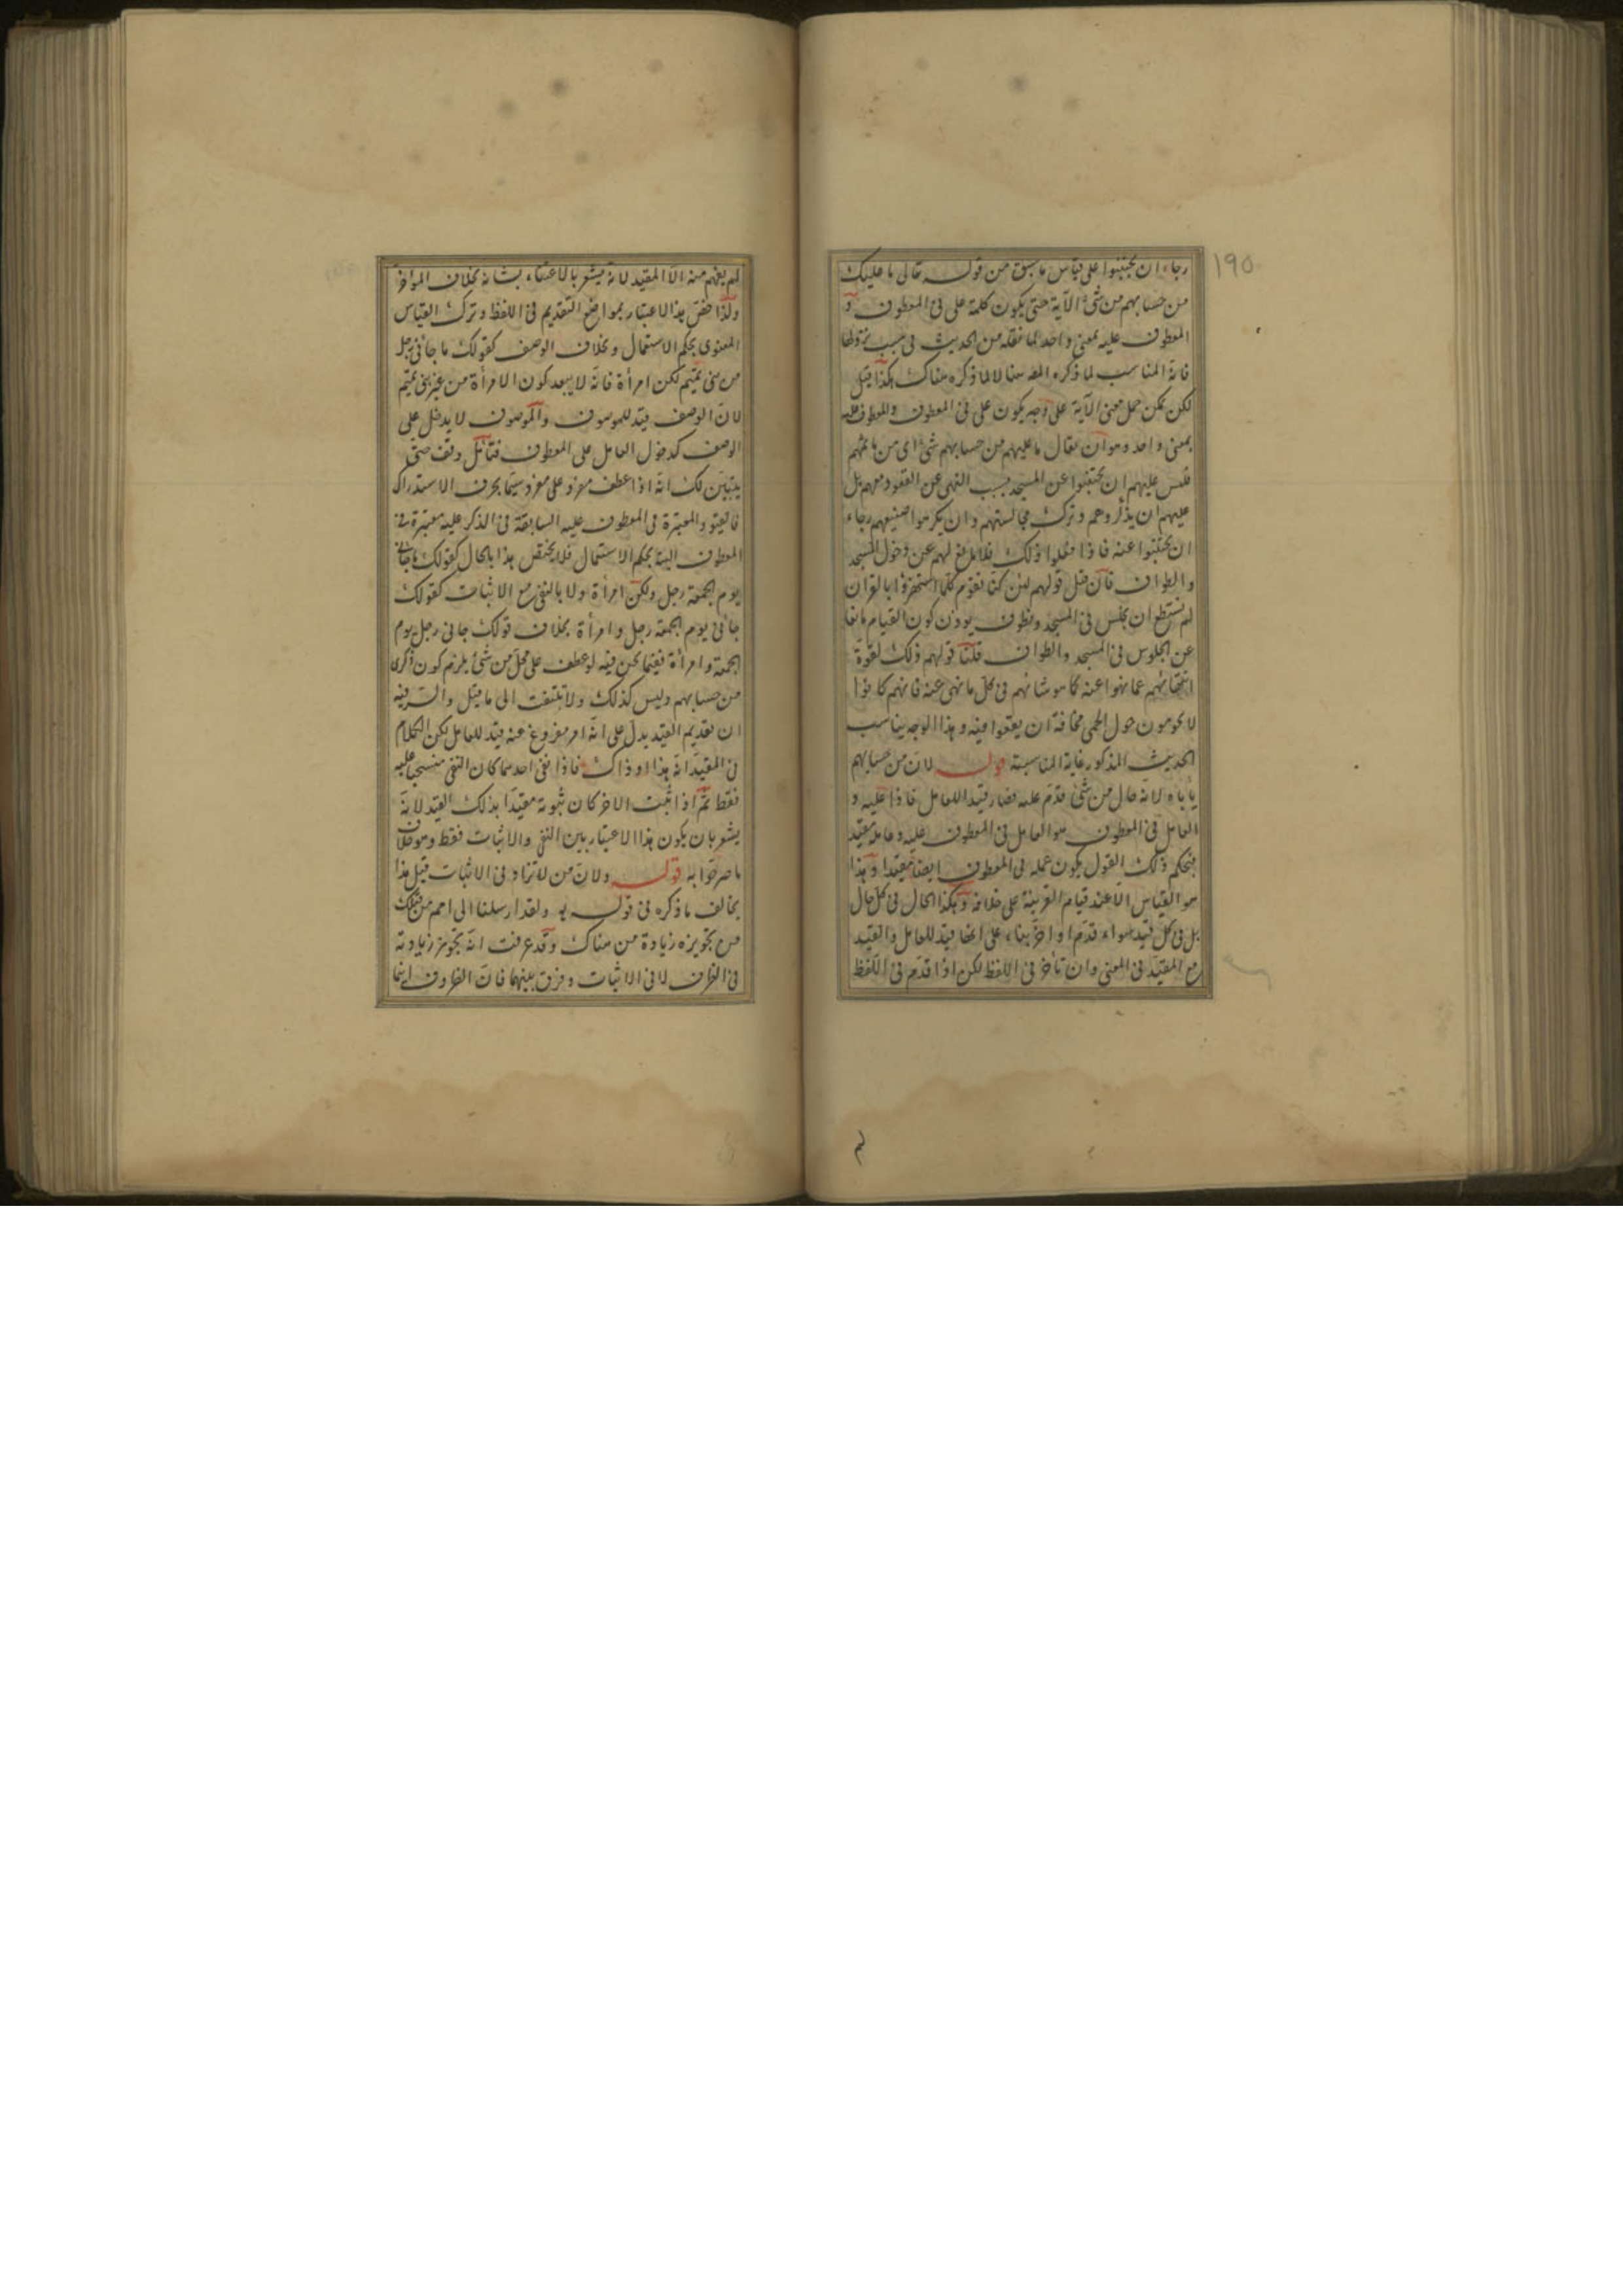 ١٩٥
رجاء ان يجتنبوا على قياس ما سبق من قوله تعالى ما عليك
من حسابهم من شئ الآية حتى يكون كلمة على فى المعطوف و
المعطوف عليه بمعنى واحد لما نقله من الحديث فى سبب نزولها
فانه المناسب لما ذكره المص هنا لا لما ذكره هناك هكذا قيل
لكن يمكن حمل معنى الآية على وجه يكون على فى المعطوف والمعطوف عليه
بمعنى واحد وهو ان يقال ما عليهم من حسابهم شئ اى من ما ثمهم
فليس عليهم ان يجتنبوا عن المسجد بسبب النهى عن القعود معهم بل
عليهم ان يذكروهم وترك مجالستهم وان يكرهوا صنيعهم رجاء
ان يجتنبوا عنه فاذا فعلوا ذلك فلا مانع لهم عن دخول المسجد
والطواف فان قيل قولهم لئن كنا نقوم كلما استهزؤا بالقران
لم نستطع ان نجلس فى المسجد ونطوف يوذن كون القيام مانعا
عن الجلوس فى المسجد والطواف قلنا قولهم ذلك لقوة
انتهائهم عما نهوا عنه كما هو شانهم فى كل ما نهى عنه فانهم كانوا
لا يحومون حول الحمى مخافة ان يقعوا فيه وهذا الوجه يناسب
الحديث المذكور غاية المناسبة قوله لان من حسابهم
يأباه لانه حال من شئ قدم عليه فصار قيد اللعامل فاذا عليه و
العامل فى المعطوف هو العامل فى المعطوف عليه وعامله مقيد
فبحكم ذلك القول يكون عمله فى المعطوف ايضا مقيدا وهذا
هو القياس الا عند قيام القرينة على خلافه وهكذا الحال فى كل حال
بل فى كل قيد سواء قدم او اخر بناء على انها قيد للعامل والقيد
مع المقيد فى المعنى وان تأخر فى اللفظ لكن اذا قدم فى اللفظ
لم
لم يفهم منه الا المقيد لانه يشعر بالاعتناء بشانه بخلاف المؤخر
ولذا خص هذا الاعتبار بمواضع التقديم فى اللفظ وترك القياس
المعنوى بحكم الاستعمال وبخلاف الوصف كقولك ما جائنى رجل
من بنى تميم لكن امرأة فانه لا يبعد كون الامرأة من غير بنى تميم
لان الوصف قيد للموصوف والموصوف لا يدخل على
الوصف كدخول العامل على المعطوف فتأمل وقف حتى
يتبين لك انه اذا عطف مفرد على مفرد سيما بحرف الاستدراك
فالقيود المعتبرة فى المعطوف عليه السابقة فى الذكر عليه معتبرة فى
المعطوف البتة بحكم الاستعمال فلا يختص هذا بالحال كقولك ما جائنى
يوم الجمعة رجل ولكن امرأة ولا بالنفى مع الاثبات كقولك
جائنى يوم الجمعة رجل وامرأة بخلاف قولك جانى رجل يوم
الجمعة وامرأة ففيما نحن فيه لو عطف على محل من شئ يلزم كون ذكرى
من حسابهم وليس كذلك ولا تلتفت الى ما قيل والسر فيه
ان تقديم القيد يدل على انه امر مفروغ عنه قيد للعامل لكن الكلام
فى المقيد انه هذا او ذاك فاذا نفى احدهما كان النفى منسحبا عليه
فقط ثم اذا اثبت الاخر كان ثبوته مقيدا بذلك القيد لانه
يشعر بان يكون هذا الاعتبار بين النفى والاثبات فقط وهو خلاف
ما صرحوا به قوله ولان من لا تزاد فى الاثبات قيل هذا
يخالف ما ذكره فى قوله ولقد ارسلنا الى امم من قبلك
من تجويزه زيادة من هناك وقد عرفت انه بجويز زيادته
فى الظرف لا فى الاثبات وفرق بينهما فان الظروف انما